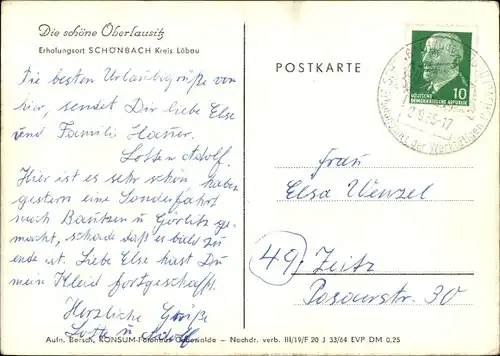 Die schöne Oberlausitz
Erholungsort SCHÖNBACH Kreis Löbau
Die besten Urlaubsgrüße von
hier, sendet Dir liebe Else
und Familie Hauer.
Lotte u Adolf.
Hier ist es sehr schön haben
gestern eine Sonderfahrt
nach Bautzen u Görlitz ge-
macht, schade daß es bald zu
ende ist. Liebe Else hast Du
mein Kleid fortgeschafft.
Herzliche Grüße
Lotte u Adolf
POSTKARTE
10
DEUTSCHE
DEMOKRATISCHE REPUBLIK
der Werktätigen
Frau
Elsa Wenzel
49 Zeitz
Posaerstr. 30
Aufn. Bersch, KONSUM-Fotohaus Cunewalde – Nachdr. verb. III/19/F 20 J 33/64 EVP DM 0,25